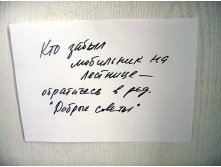 Кто забыл
мобильник на
лестнице —
обратитесь в ред.
"Добрые советы"